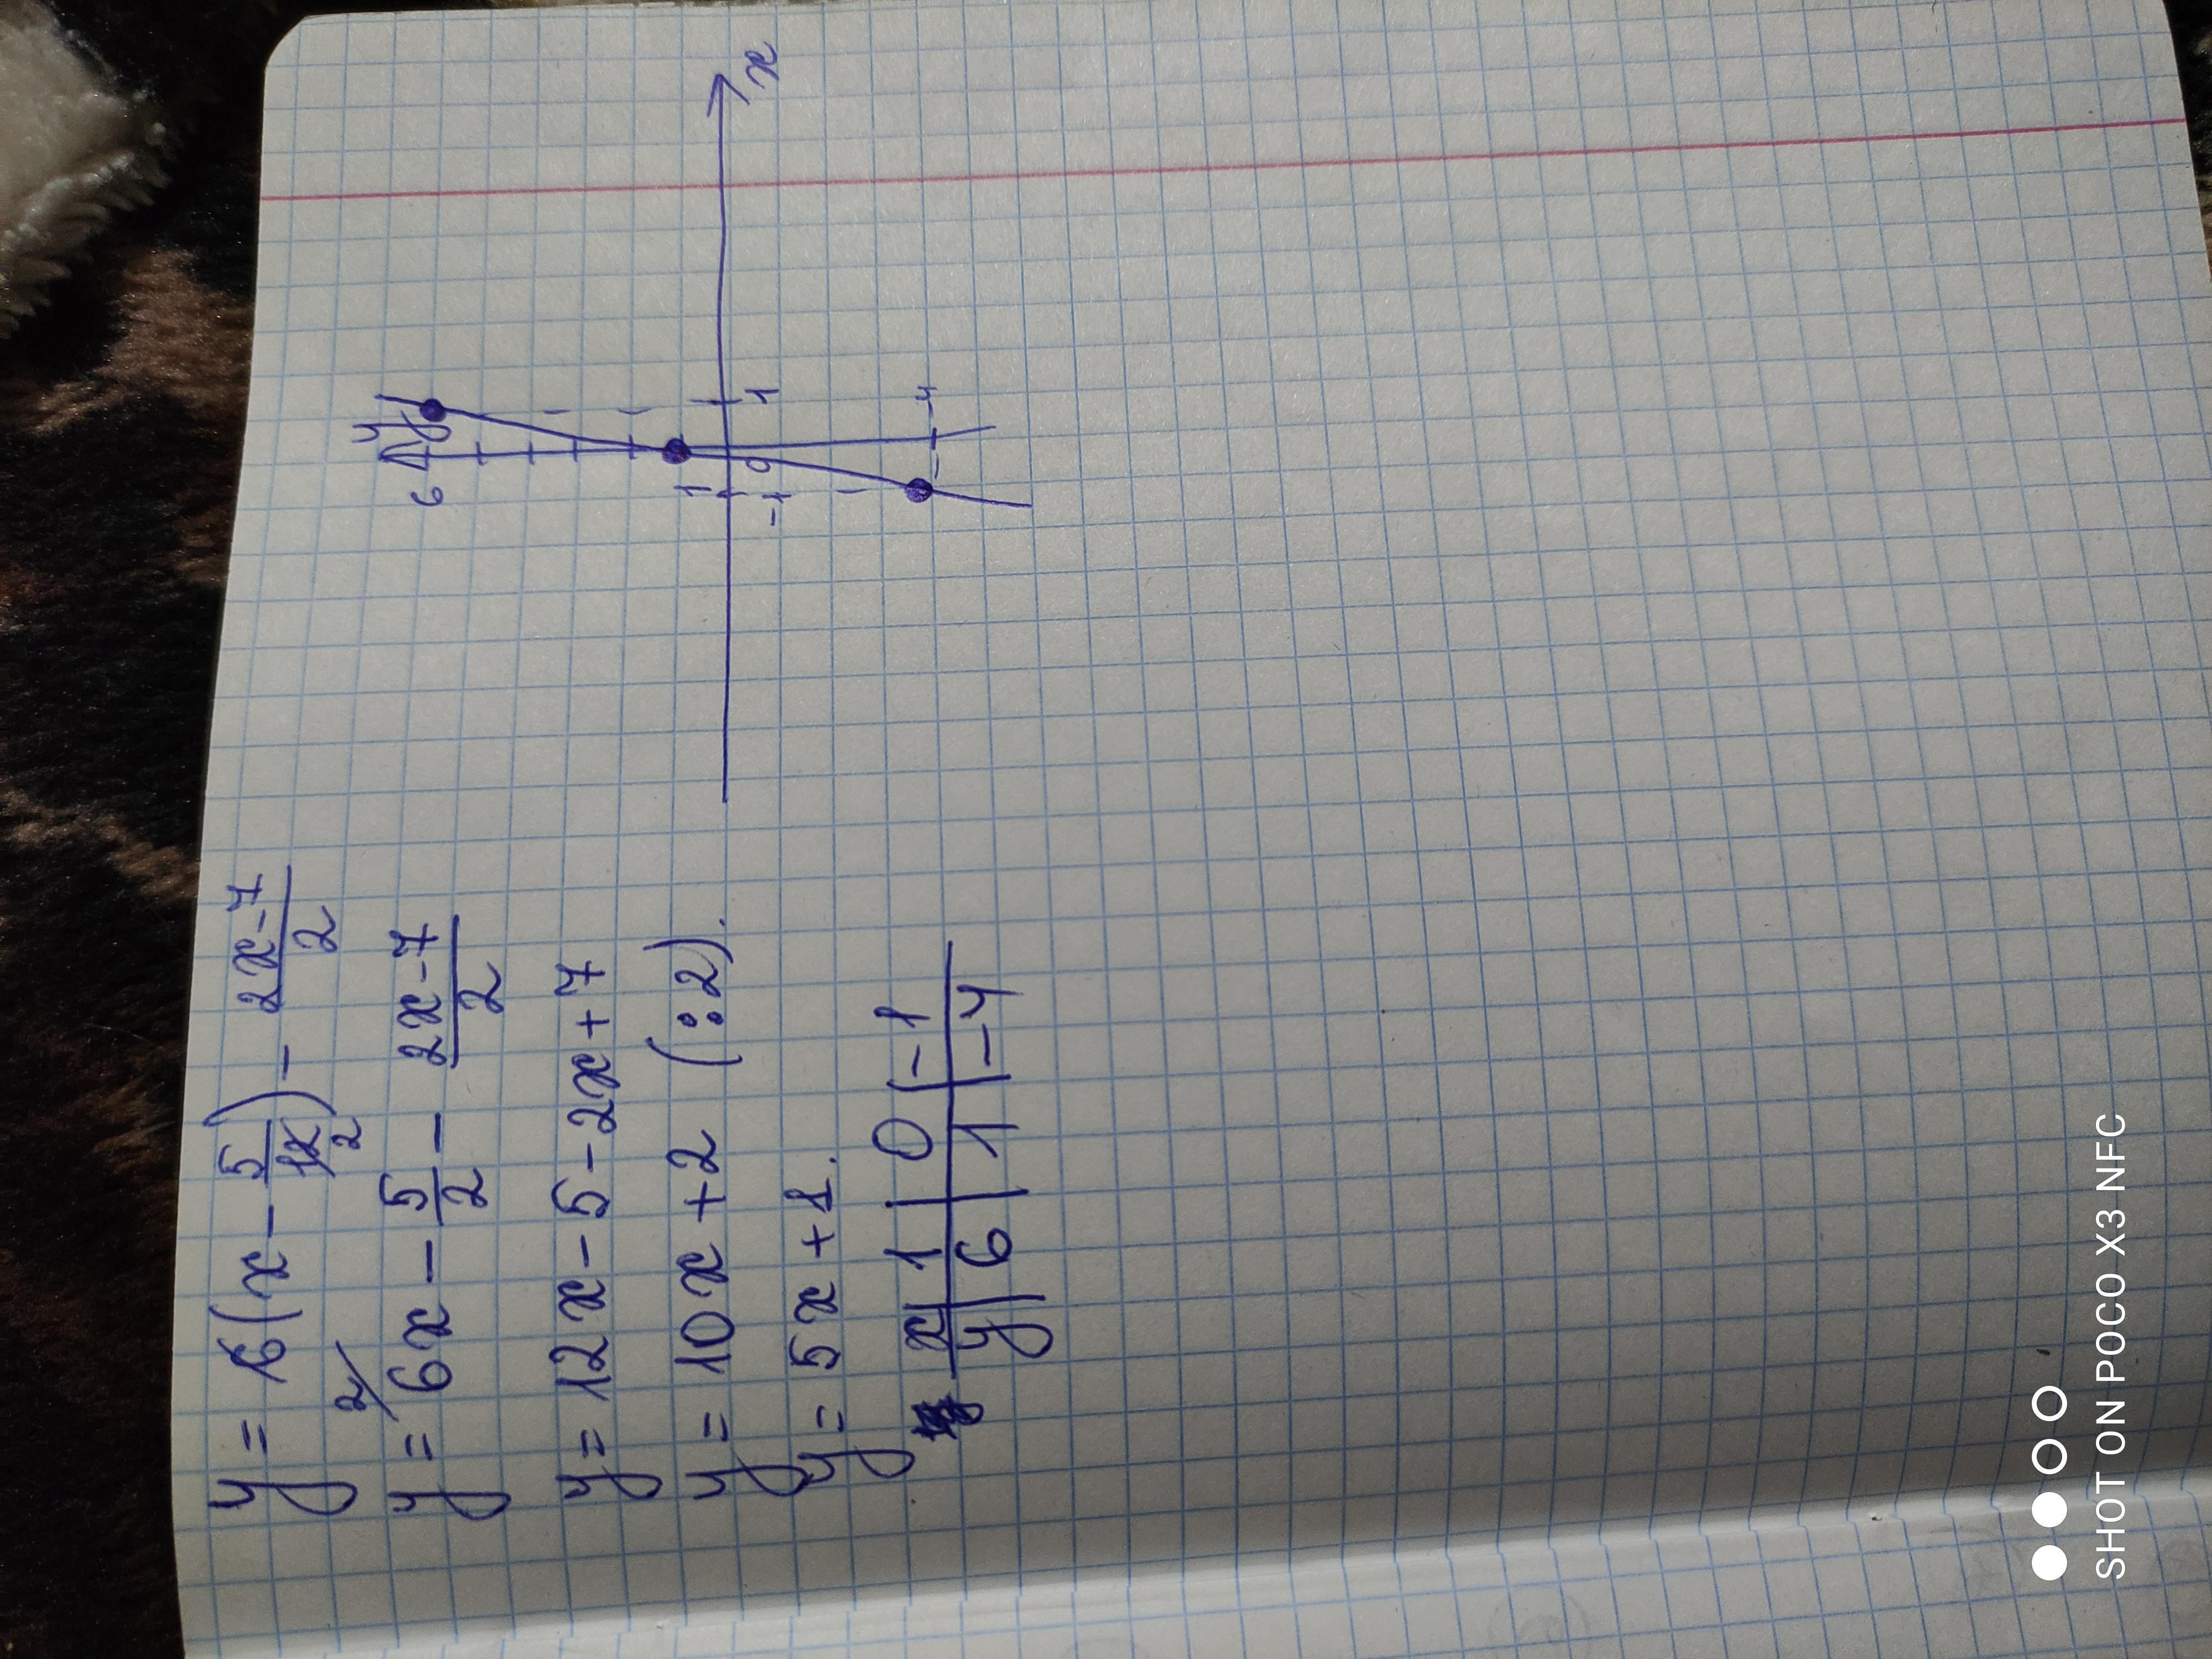 y = 6(x - 5/12) - (2x-7)/2
2/
y = 6x - 5/2 - (2x-7)/2
y = 12x - 5 - 2x + 7
y = 10x + 2 (:2).
y = 5x + 1.
x | 1 | 0 | -1
y | 6 | 1 | -4
y
6
x
1
-1
0
1
-4
SHOT ON POCO X3 NFC